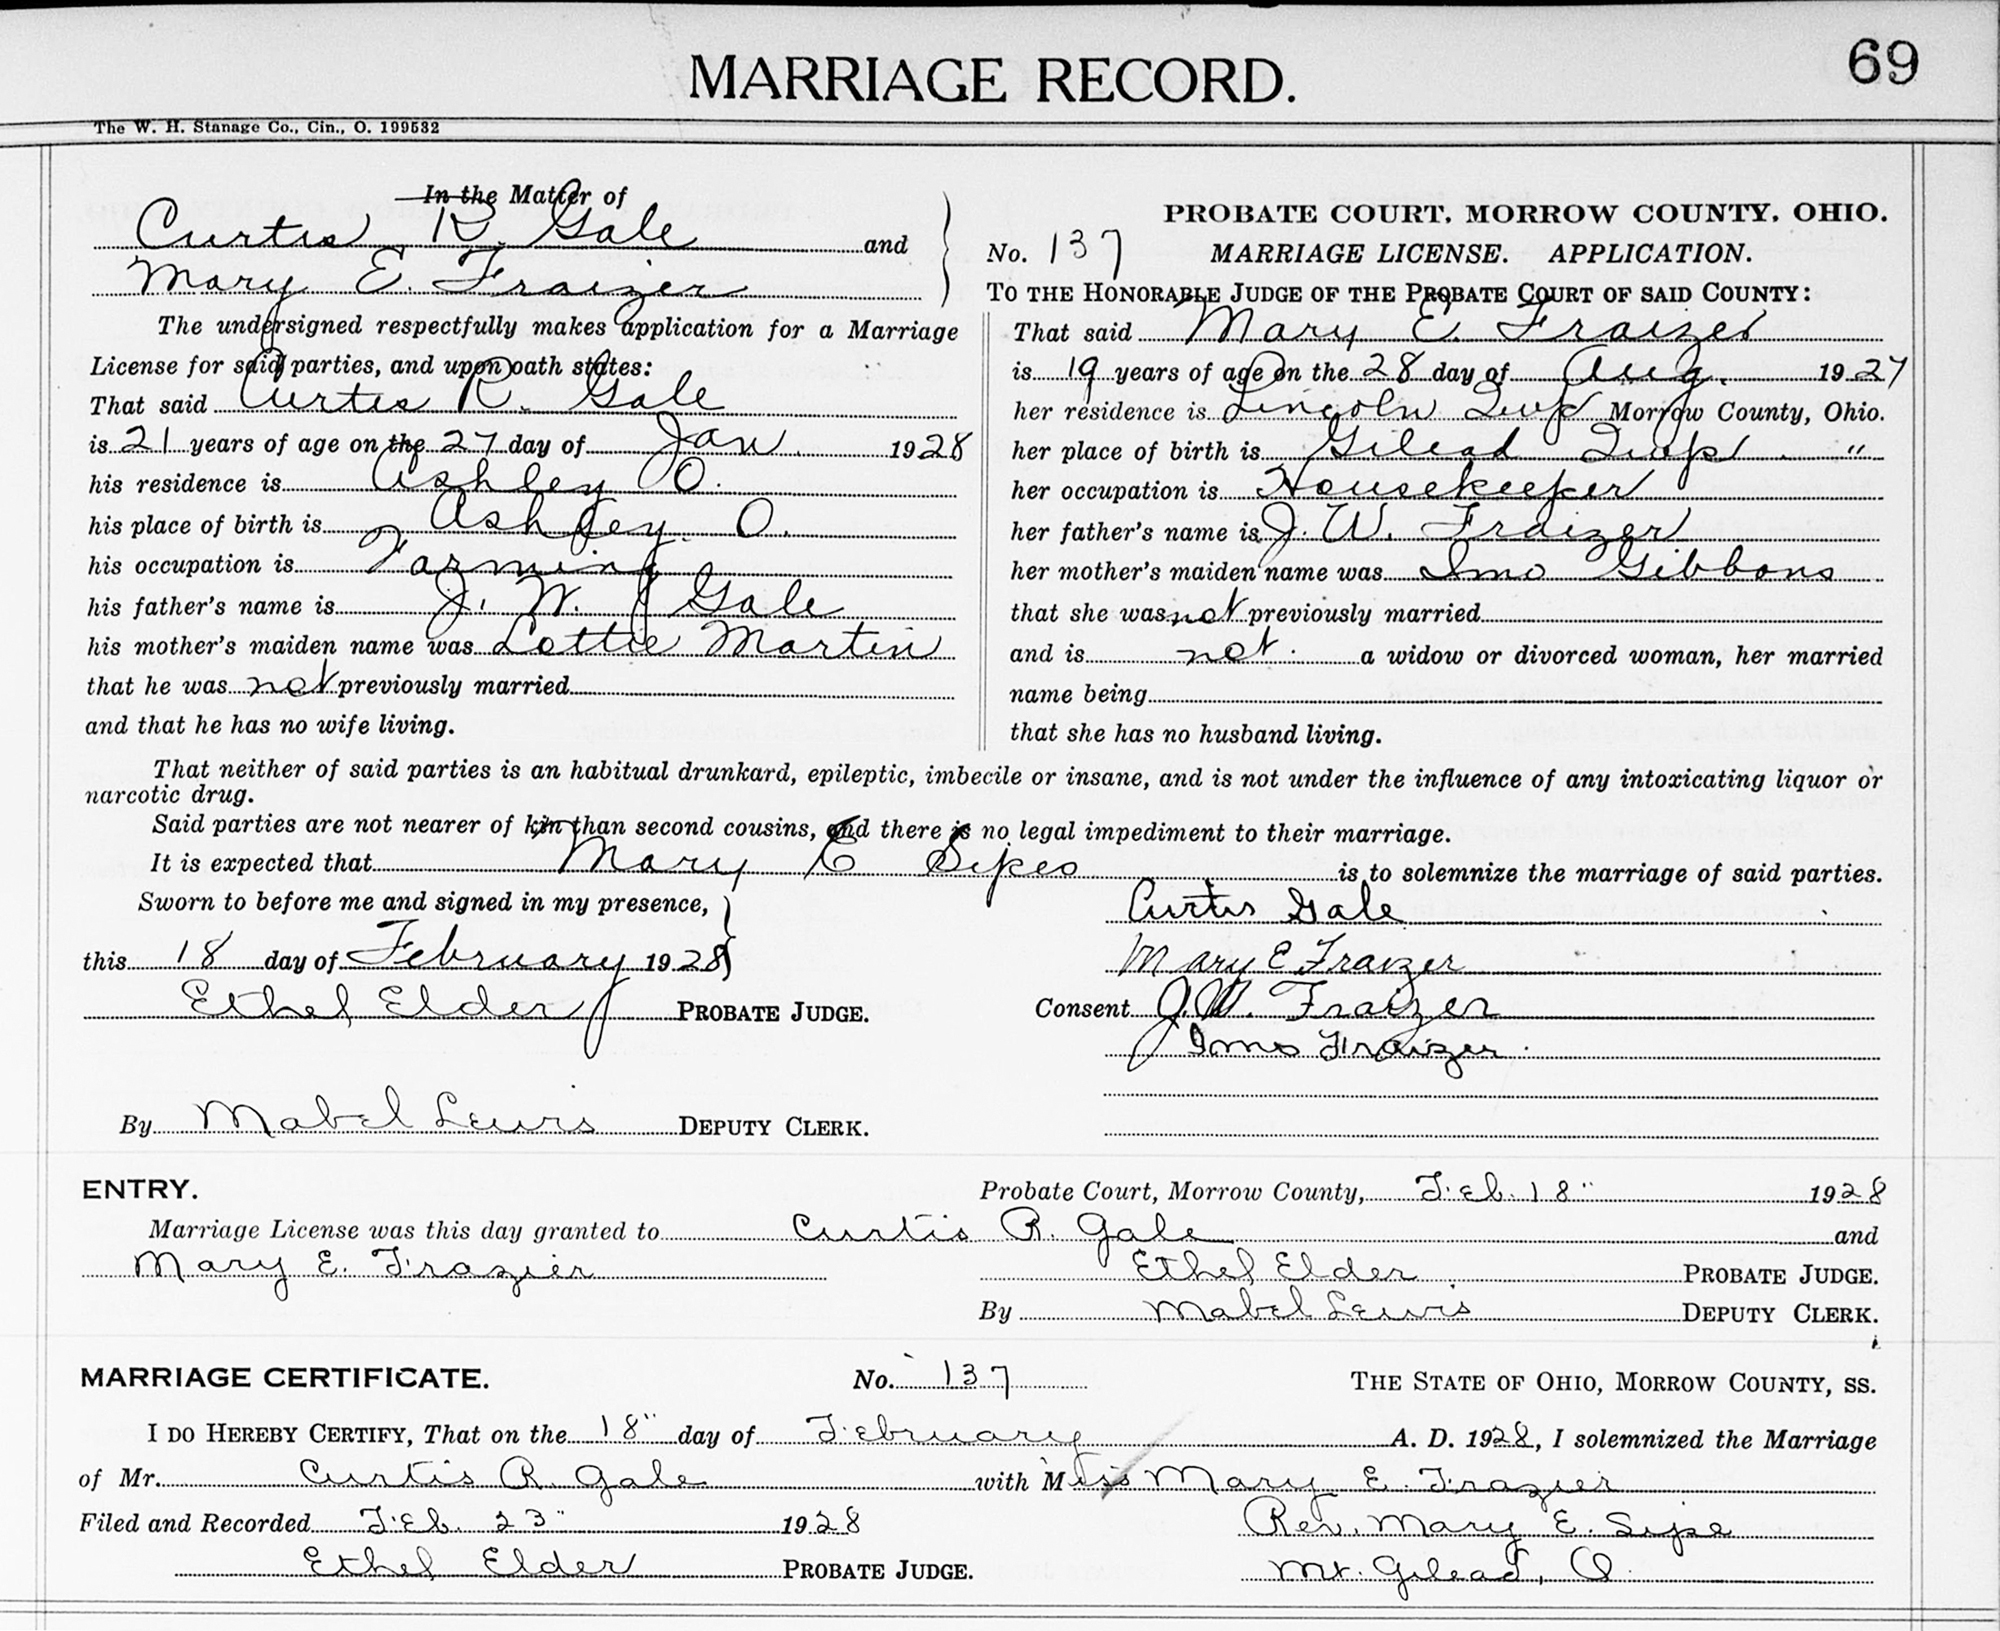 MARRIAGE RECORD.
69
The W. H. Stanage Co., Cin., O. 199532
In the Matter of
Curtis R. Gale and
Mary E. Fraizer
The undersigned respectfully makes application for a Marriage
License for said parties, and upon oath states:
That said Curtis R. Gale
is 21 years of age on the 27 day of Jan. 1928
his residence is Ashley O.
his place of birth is Ashley O.
his occupation is Farming
his father's name is J. W. Gale
his mother's maiden name was Lottie Martin
that he was not previously married
and that he has no wife living.
PROBATE COURT, MORROW COUNTY, OHIO.
No. 137 MARRIAGE LICENSE. APPLICATION.
TO THE HONORABLE JUDGE OF THE PROBATE COURT OF SAID COUNTY:
That said Mary E. Fraizer
is 19 years of age on the 28 day of Aug. 1927
her residence is Lincoln Twp Morrow County, Ohio.
her place of birth is Gilead Twp. "
her occupation is Housekeeper
her father's name is J. W. Fraizer
her mother's maiden name was Imo Gibbons
that she was not previously married
and is not a widow or divorced woman, her married
name being
that she has no husband living.
That neither of said parties is an habitual drunkard, epileptic, imbecile or insane, and is not under the influence of any intoxicating liquor or
narcotic drug.
Said parties are not nearer of kin than second cousins, and there is no legal impediment to their marriage.
It is expected that Mary E Sipes is to solemnize the marriage of said parties.
Sworn to before me and signed in my presence,
this 18 day of February 1928
Ethel Elder PROBATE JUDGE.
By Mabel Lewis DEPUTY CLERK.
Curtis Gale
Mary E Fraizer
Consent J. W. Fraizer
Imo Fraizer
ENTRY. Probate Court, Morrow County, Feb. 18" 1928
Marriage License was this day granted to Curtis R. Gale and
Mary E. Frazier Ethel Elder PROBATE JUDGE.
By Mabel Lewis DEPUTY CLERK.
MARRIAGE CERTIFICATE. No. 137 THE STATE OF OHIO, MORROW COUNTY, SS.
I DO HEREBY CERTIFY, That on the 18" day of February A. D. 1928, I solemnized the Marriage
of Mr. Curtis R. Gale with Miss Mary E. Frazier
Filed and Recorded Feb. 23" 1928 Rev. Mary E. Sipe
Ethel Elder PROBATE JUDGE. Mt. Gilead, O.